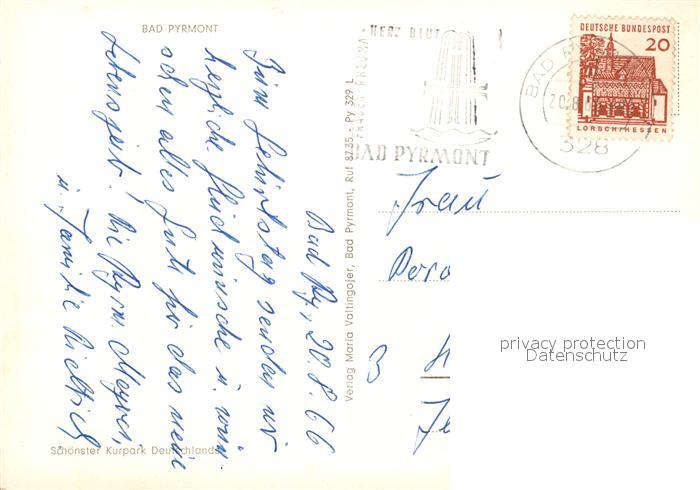 BAD PYRMONT
HERZ BLUT
FRAUEN RHEUMA
BAD PYRMONT
BAD
20.8.
328
DEUTSCHE BUNDESPOST
20
LORSCH/HESSEN
Bad Py, 20.8.66
Zum Geburtstag senden wir
herzliche Glückwünsche u. wün-
schen alles Gute für das neue
Lebensjahr. Die Pyrm. Meyer,
u. Familie
Frau
3
Verlag Maria Valtingojer, Bad Pyrmont, Ruf 8735 - Py 329 L
Schönster Kurpark Deutschlands
privacy protection
Datenschutz